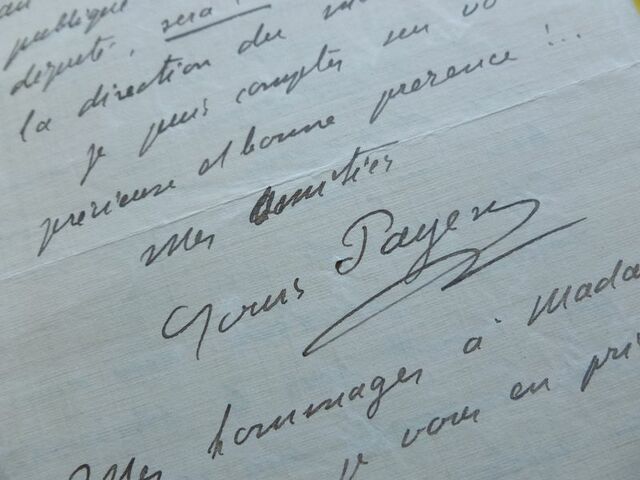 publique
député, sera
la direction du
je puis compter sur vo
précieuse et bonne présence !..
Mes Amitiés
Louis Payen
Mes hommages à Mada
je vous en pri